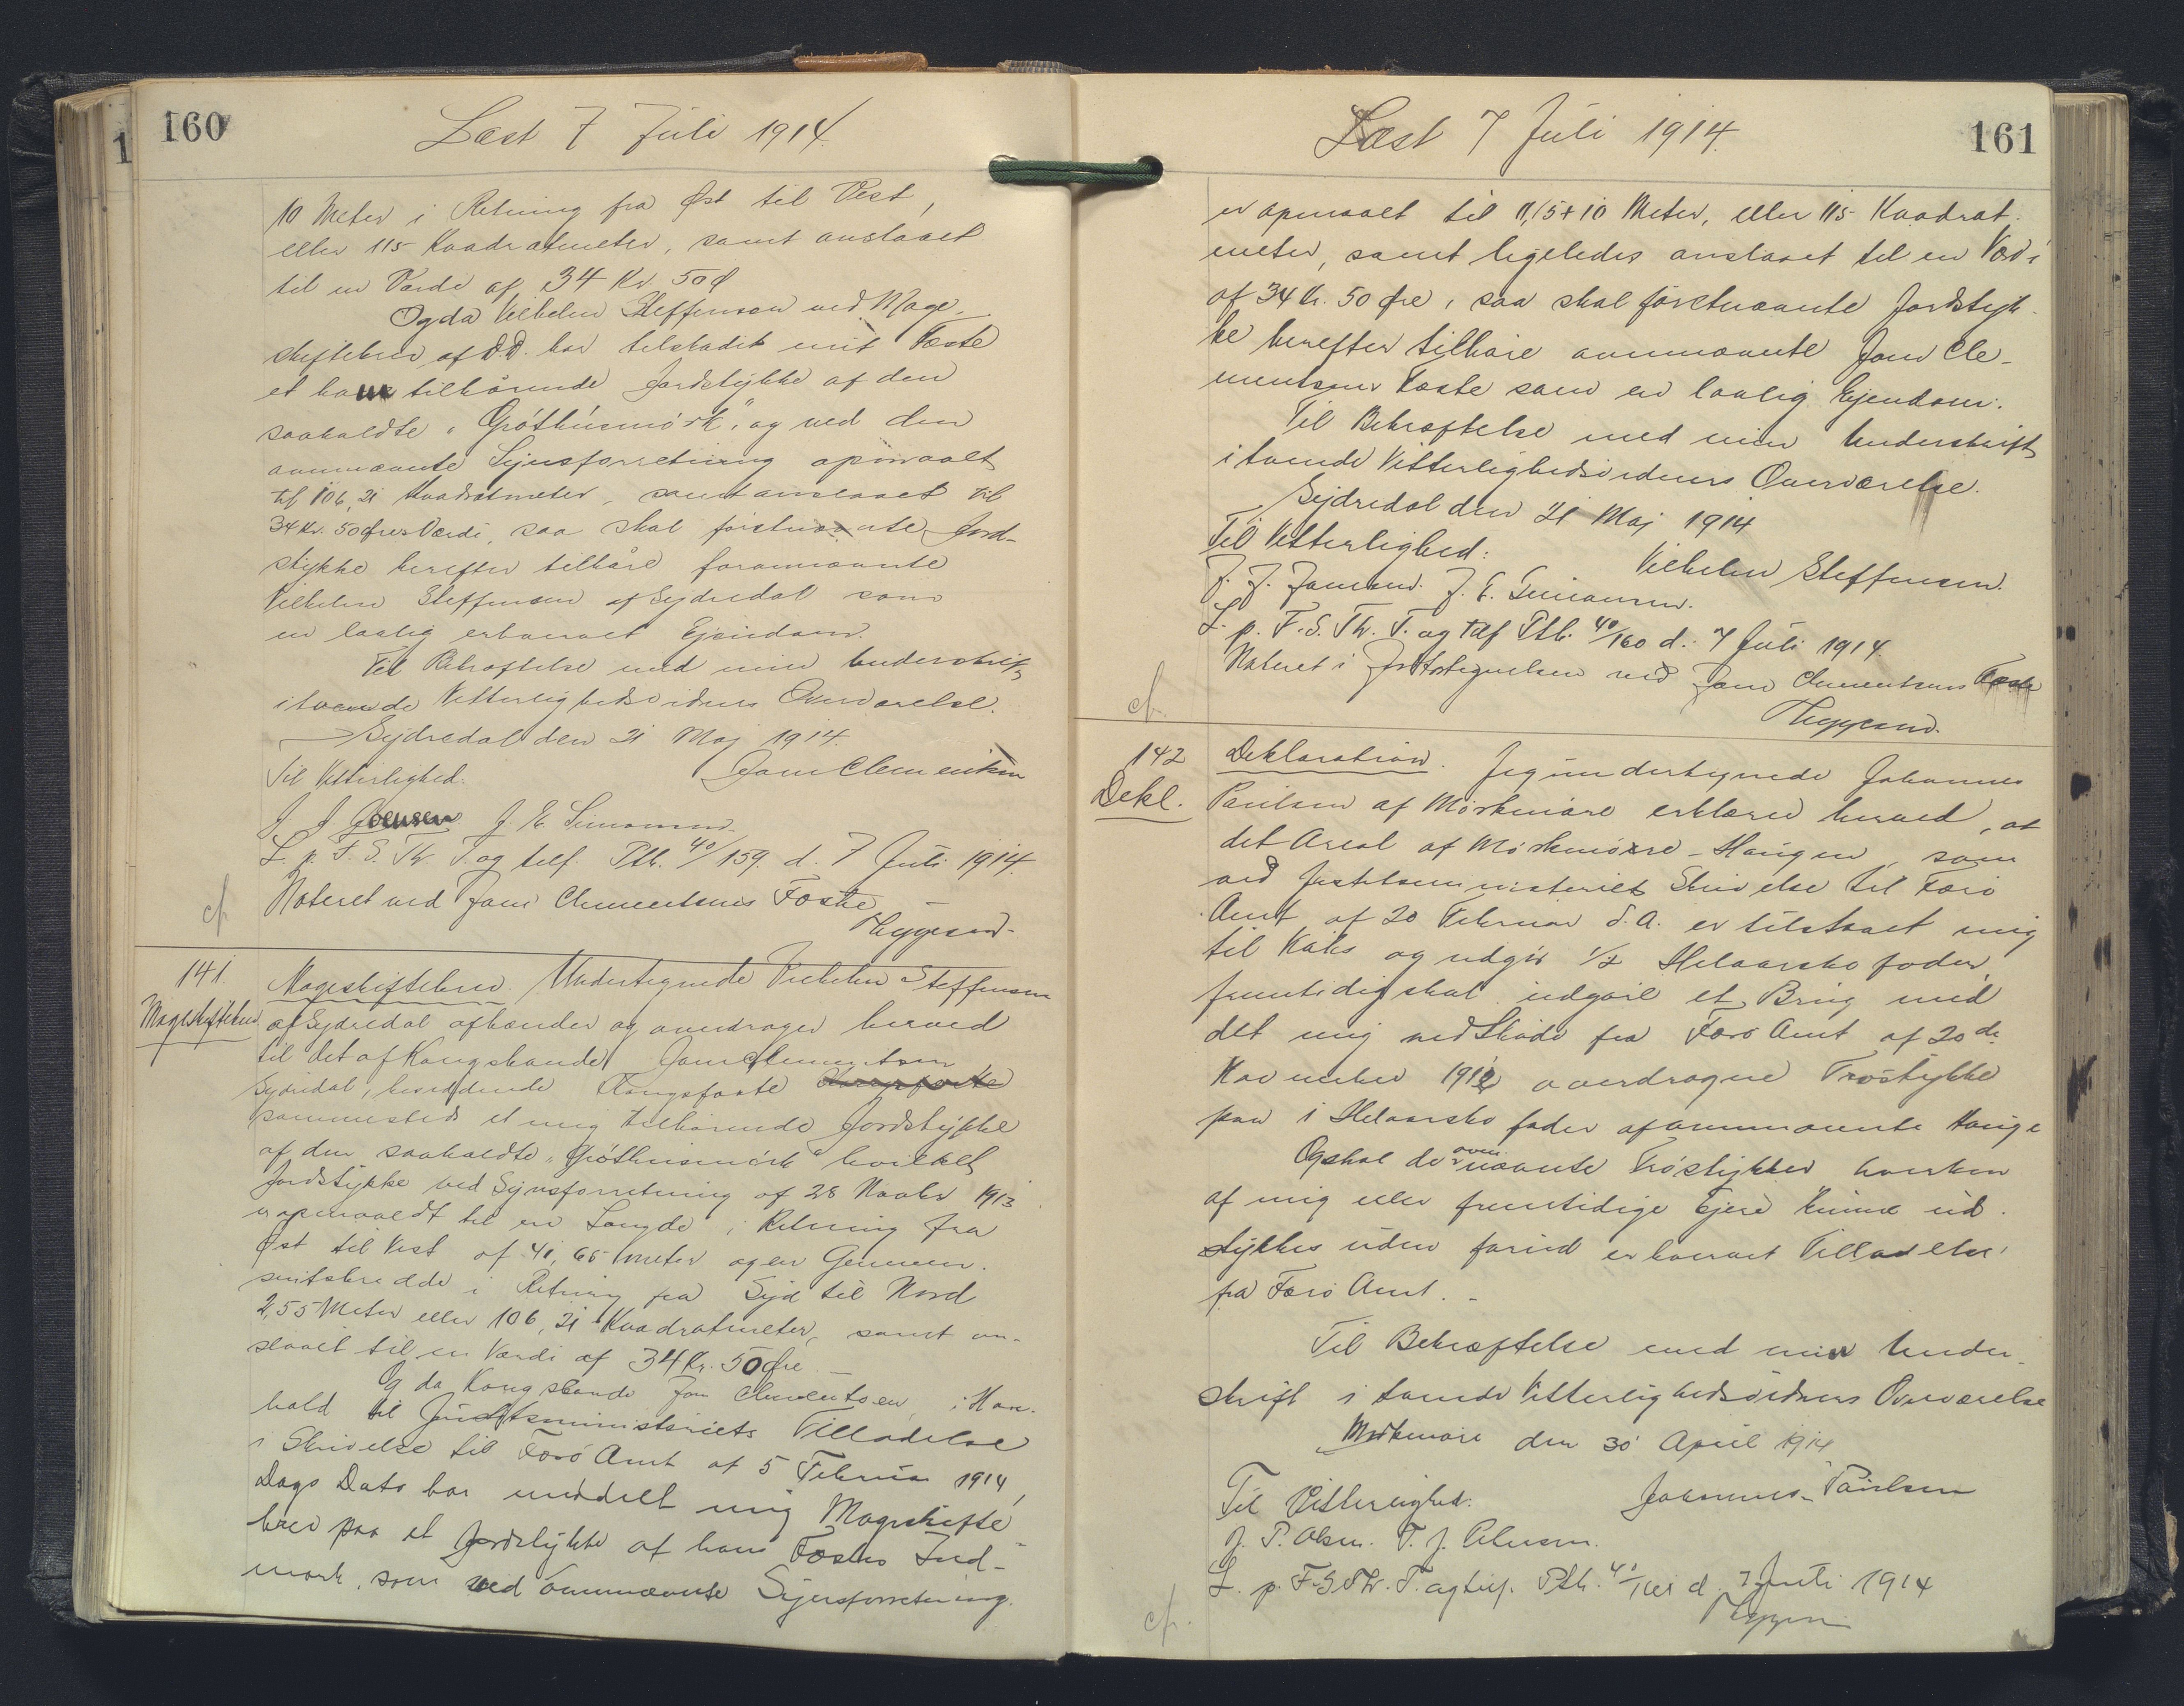 160
Læst 7 Juli 1914.
10 Meter i Retning fra Øst til Vest,
eller 115 Kvadratmeter, samt anslaaet
til en Værdi af 34 Kr 50 Ø
Og da Vilhelm Steffensen ved Mage-
skiftebrev af D.D. har tilstadet mit Fæste
et ham tilhørende Jordstykke af den
saakaldte "Gróthúsmørk", og ved den
ovennævnte Synsforretning opmaalt
til 106,21 Kvadratmeter, samt anslaaet til
34 Kr. 50 Øres Værdi, saa skal førstnævnte Jord-
stykke herefter tilhøre forannævnte
Vilhelm Steffensen af Sydredal som
en lovlig erhvervet Ejendom.
Til Bekræftelse med min Underskrift
i tvende Vitterlighedsvidners Overværelse.
Sydredal den 21 Maj 1914.
Til Vitterlighed: Joan Clementsen
J J Joensen J. E. Simonsen.
L. p. F. S. Th. T. og telf. Ptb. 40/159. d. 7 Juli 1914.
cf. Noteret ved Joan Clementsens Fæste
141. Mageskiftebrev. Undertegnede Vilhelm Steffensen
Mageskiftebrev af Sydredal afhænder og overdrager herved
til det af Kongsbonde Joan Clementsen
Sydredal, besiddende Kongsfæste
sammesteds et mig tilhørende Jordstykke
af den saakaldte "Gróthusmørk" hvilket
Jordstykke ved Synsforretning af 28 Novbr 1913
er opmaaldt til en Længde i Retning fra
Øst til Vest af 41,65 meter og en Gennem-
snitsbredde i Retning fra Syd til Nord
2,55 Meter eller 106,21 Kvadratmeter, samt an-
slaaet til en Værdi af 34 Kr. 50 Øre
Og da Kongsbonde Joan Clementsen, i Hen-
hold til Justitsministeriets Tilladelse
i Skrivelse til Færø Amt af 5 Februar 1914,
Dags Dato har meddelt mig Mageskifte-
brev paa et Jordstykke af hans Fæstes Ind-
mark, som ved ovennævnte Synsforretning.
Læst 7 Juli 1914.
161
er opmaalt til 11,15+10 Meter, eller 115 Kvadrat-
meter, samt ligeledes anslaaet til en Værdi
af 34 Kr. 50 Øre, saa skal førstnævnte Jordstyk-
ke herefter tilhøre ovennævnte Joan Cle-
mentsens Fæste som en lovlig Ejendom.
Til Bekræftelse med min Underskrift
i tvende Vitterlighedsvidners Overværelse.
Sydredal den 21 Maj 1914
Til Vitterlighed: Vilhelm Steffensen.
J. J. Joensen. J. E. Simonsen.
L. p. F. S. Th. T. og telf Ptb. 40/160 d. 7 Juli 1914.
Noteret i Jordtegnelsen ved Joan Clementsens Fæste
cf.
142 Deklaration. Jeg undertegnede Johannes
Dekl. Paulsen af Mørkenøre erklærer herved, at
det Areal af Mørkenøre-Haugen, som
ved Justitsministeriets Skrivelse til Færø
Amt af 20 Februar d.A. er tilstaaet mig
til Købs og udgør 1/2 Helaarsko foder,
fremtidig skal udgøre et Brug med
det mig ved Skøde fra Færø Amt af 20de
November 1912 overdragne Trøstykke
paa 1 Helaarsko foder af ovennævnte Hauge
Og skal de ovennævnte Trøstykker hverken
af mig eller fremtidige Ejere kunne ud-
stykkes uden forud erhvervet Tilladelse
fra Færø Amt.
Til Bekræftelse med min Under-
skrift i tvende Vitterlighedsvidners Overværelse
Mørkenøre den 30 April 1914
Til Vitterlighed: Johannes Paulsen
J. P. Olsen. T. J.
L. p. F. S. Th. T. og telf. Ptb. 40/161 d. 7 Juli 1914
cf.